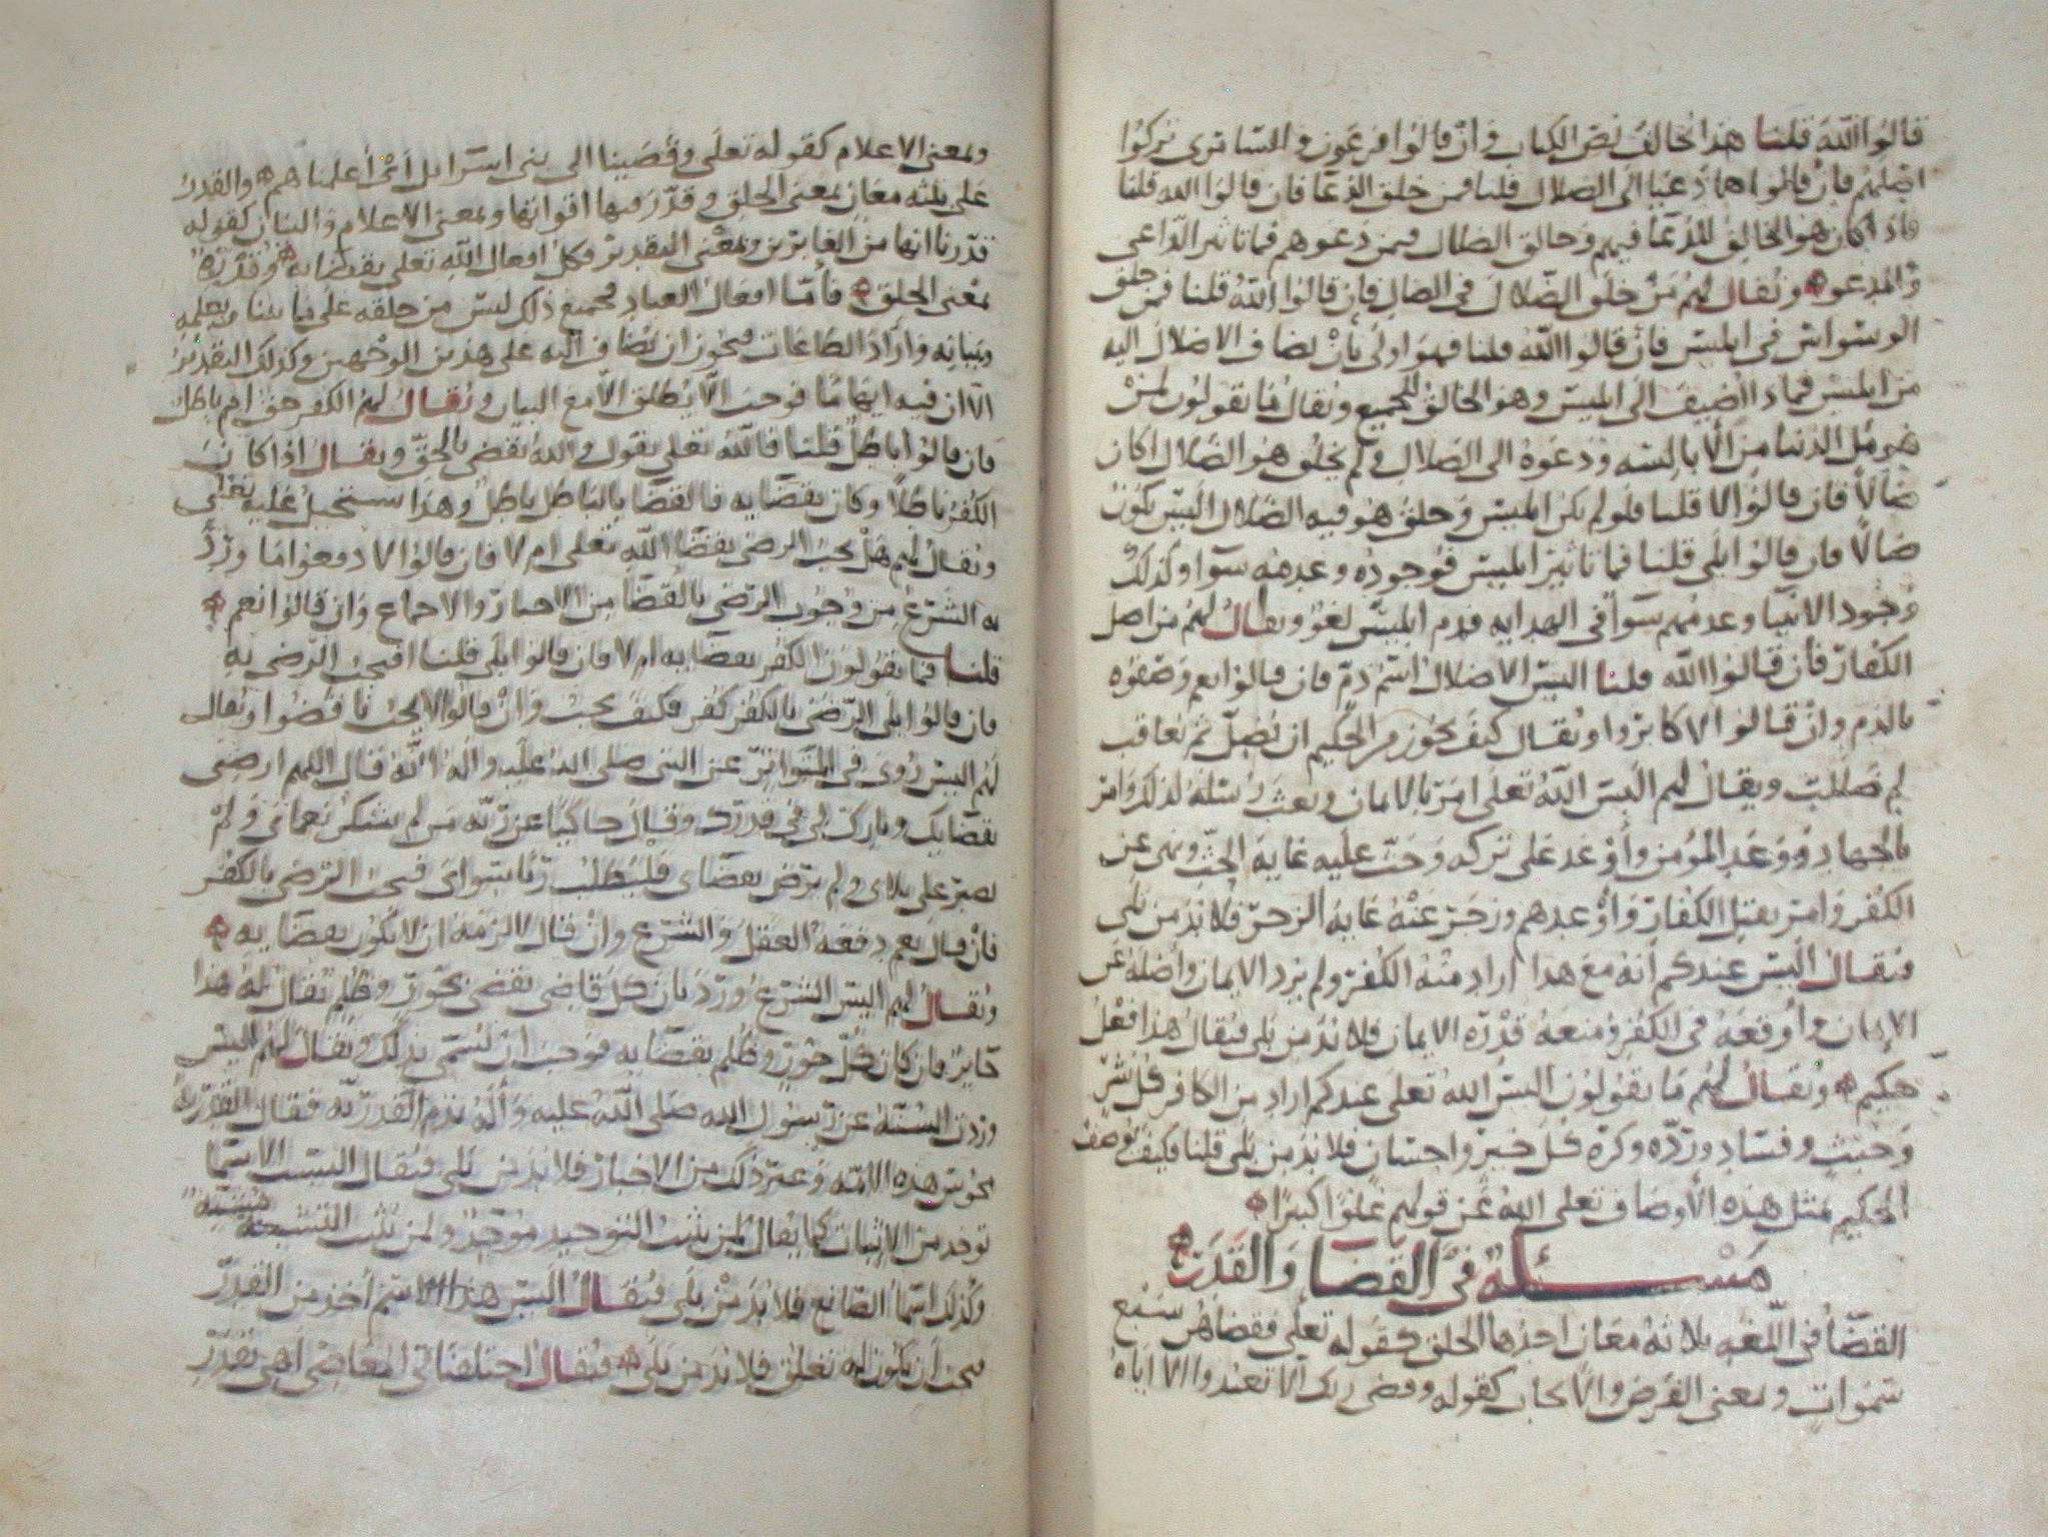 قالوا الله قلنا هذا الخالف نص الكتاب وان قالوا فرعون والسامري تركوا
اضلهم فان قالوا هما دعيا الى الضلال قلنا فمن خلق الدعا فان قالوا الله قلنا
فاذا كان هو الخالق للدعا فيهم وخالق الضلال فيمن دعوهم فما تاثير الداعي
والمدعو ونقال لهم من خلق الضلال في الضال فان قالوا الله قلنا فمن خلق
الوسواس في ابليس فان قالوا الله قلنا فهو اولى بان يضاف الاضلال اليه
من ابليس فماذا اضيف الى ابليس وهو الخالق للجميع ونقال ما تقولون لمن
في الدنيا من الابالسه ودعوه الى الضلال ولم يخلق هو الضلال اكان
ضالا فان قالوا لا قلنا فلو لم يكن ابليس وخلق هو فيه الضلال اليس يكون
ضالا فان قالوا بلى قلنا فما تاثير ابليس فوجوده وعدمه سوا وكذلك
وجود الانبيا وعدمهم سوا في الهدايه فذم ابليس لغو ونقال لهم من اضل
الكفار فان قالوا الله قلنا اليس الاضلال اسم ذم فان قالوا نعم وصفوه
بالذم وان قالوا لا كابروا ونقال كيف يجوز من الحكيم ان يضل ثم يعاقب
لم ضللت ويقال لهم اليس الله تعلى امر بالايمان وبعث رسله لذلك وامر
بالجهاد ووعد المؤمن واوعد على تركه وحث عليه غاية الحث ونهى عن
الكفر وامر بقتل الكفار واوعدهم وزجر عنه غاية الزجر فلا بد من بلى
فنقال اليس عندكم انه مع هذا اراد منه الكفر ولم يرد الايمان واضله عن
الايمان واوقعه في الكفر ومنعه قدره الايمان فلا بد من بلى فيقال هذا فعل
حكيم ونقال لهم ما تقولون اليس الله تعلى عندكم اراد من الكافر كل شر
وخبث وفساد ورده وكره كل خير واحسان فلا بد من بلى قلنا فكيف يوصف
الحكيم بمثل هذه الاوصاف تعلى الله عن قولهم علوا كبيرا
مسئلة في القضا والقدر
القضا في اللغه ثلاثة معان احدها الخلق كقوله تعلى فقضاهن سبع
سموات وبمعنى الفرض والايجاب كقوله وقضى ربك الا تعبدوا الا اياه
وبمعنى الاعلام كقوله تعلى وقضينا الى بني اسرائيل اي اعلمناهم والقدر
على ثلثه معان بمعنى الخلق وقدر فيها اقواتها وبمعنى الاعلام والبيان كقوله
قدرنا انها من الغابرين وبمعنى التقدير فكل افعال الله تعلى بقضائه وقدره
بمعنى الخلق فاما افعال العباد فجميع ذلك ليس من خلقه على ما بينا
وبيانه واراد الطاعات فيجوز ان يضاف اليه على هذين الوجهين وكذلك التقدير
الا ان فيه ايهاما فوجب الا يطلق الا مع البيان ونقال لهم الكفر حق ام باطل
فان قالوا باطل قلنا فالله تعلى يقول والله يقضي بالحق ويقال اذا كان
الكفر باطلا وكان بقضايه فالقضا بالباطل باطل وهذا يستحيل عليه تعلى
ونقال لهم هل يجب الرضى بقضا الله تعلى ام لا فان قالوا لا دفعوا ما ورد
به الشرع من وجوب الرضى بالقضا من الاخبار والاجماع وان قالوا نعم
قلنا فما تقولون الكفر بقضايه ام لا فان قالوا بلى قلنا افيجب الرضى به
فان قالوا بلى الرضى بالكفر كفر فكيف يجب وان قالوا لا يجب ناقضوا ونقال
لهم اليس روى في المتواتر عن النبي صلى الله عليه واله انه قال اللهم ارضني
بقضايك وبارك لي في قدرك وقال حاكيا عن ربه من لم يشكر نعماى ولم
يصبر على بلاى ولم يرض بقضاى فليطلب ربا سواى فيجب الرضى بالكفر
فان قال نعم دفعه العقل والشرع وان قال لا لزمه ان لا يكون بقضايه
ونقال لهم اليس الشرع ورد بان كل قاضي يقضي بجور وظلم يقال له هذا
جاير فان كان كل جور وظلم بقضايه فوجب ان يسمى بذلك ونقال لهم اليس
وردت السنة عن رسول الله صلى الله عليه واله بذم القدريه فقال القدريه
مجوس هذه الامه وغير ذلك من الاخبار فلا بد من بلى فنقال اليست الاسما
توخذ من الاثبات كما يقال لمن يثبت التوحيد موحد ولمن يثبت التشبيه
وكذلك اسما الصانع فلا بد من بلى فنقال اليس هذا الاسم اخذ من القدر
فيجب ان يكون له تعلق فلا بد من بلى فنقال اختلفنا في المعاصي اهي بقدر